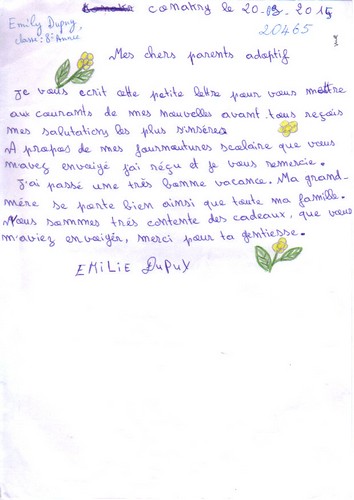 Emily Dupuy,
classe: 8e Année
Conakry le 20-09-2015
20465
Mes chers parents adoptif
Je vous ecrit cette petite lettre pour vous mettre
au courants de mes nouvelles avant tous reçois
mes salutations les plus sinsères
A propos de mes fournoutures scolaire que vous
m'avez envoigé j'ai réçu et je vous remercie.
J'ai passé une très bonne vacance. Ma grand-
mère se porte bien ainsi que toute ma famille.
Nous sommes très contente des cadeaux, que vous
m'aviez envoigér, merci pour ta gentiesse.
EMiLiE DuPuY